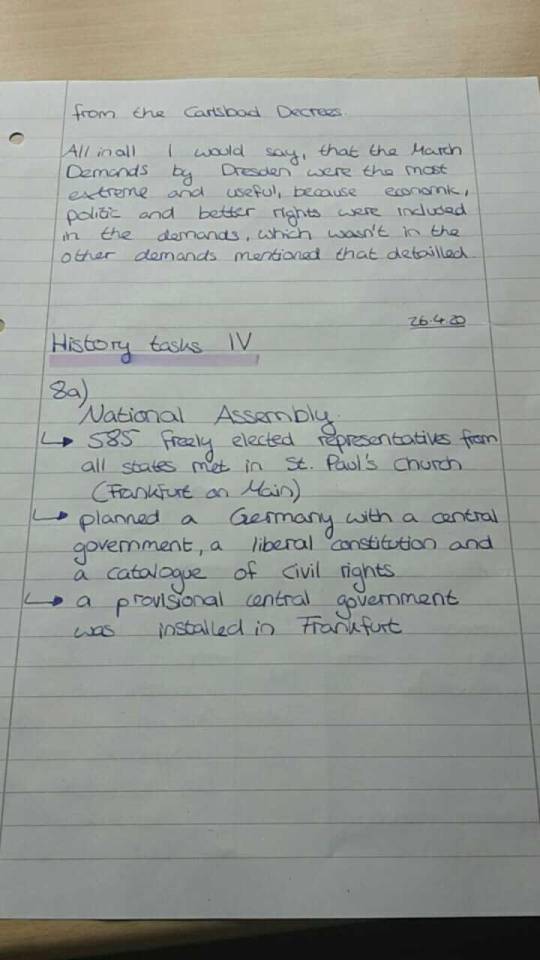 from the Carlsbad Decrees.
All in all I would say, that the March
Demands by Dresden were the most
extreme and useful, because economic,
politic and better rights were included
in the demands, which wasn't in the
other demands mentioned that detailled
26.4.20
History tasks IV
8a)
National Assembly.
↳ 585 freely elected representatives from
all states met in St. Paul's Church
(Frankfurt on Main)
↳ planned a Germany with a central
government, a liberal constitution and
a catalogue of civil rights
↳ a provisional central government
was installed in Frankfurt